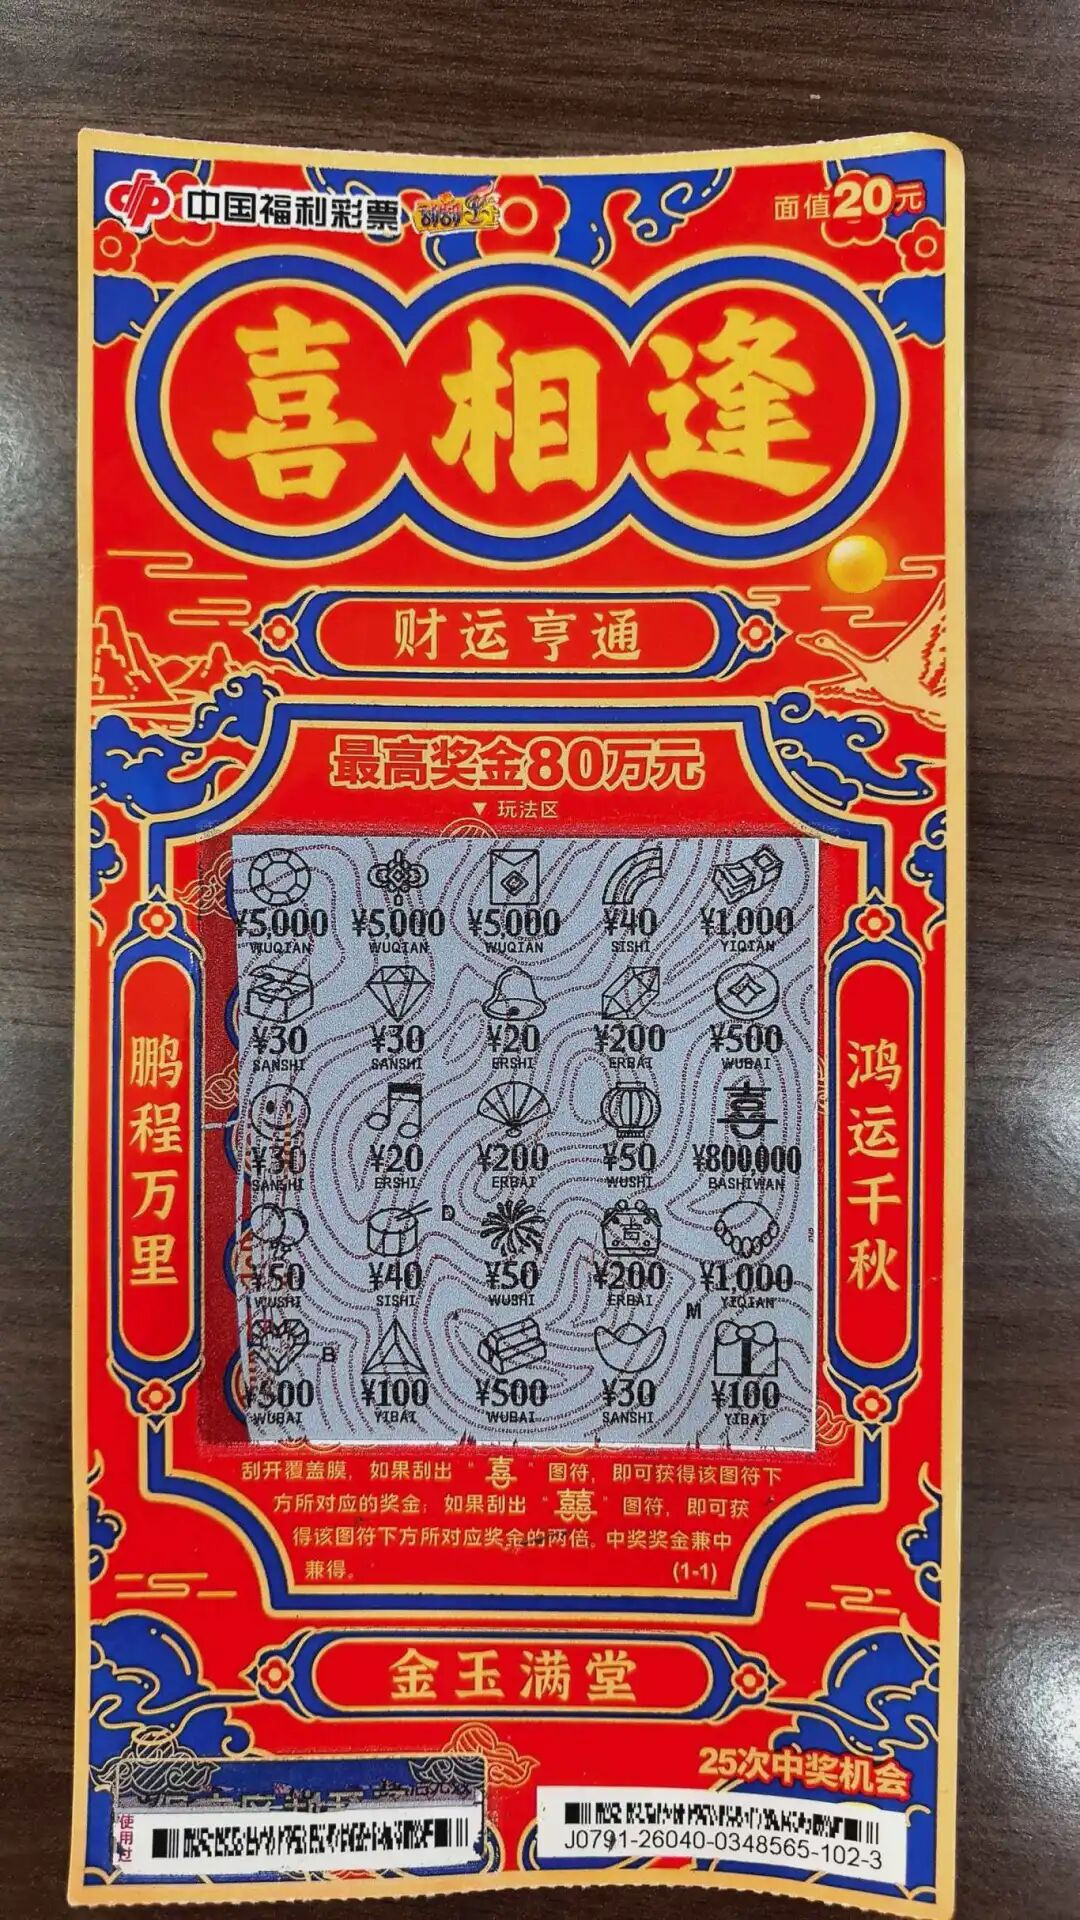 中国福利彩票 刮刮乐
面值20元
喜相逢
财运亨通
最高奖金80万元
▼ 玩法区
¥5,000 ¥5,000 ¥5,000 ¥40 ¥1,000
WUQIAN WUQIAN WUQIAN SISHI YIQIAN
¥30 ¥30 ¥20 ¥200 ¥500
SANSHI SANSHI ERSHI ERBAI WUBAI
喜
¥30 ¥20 ¥200 ¥50 ¥800,000
SANSHI ERSHI ERBAI WUSHI BASHIWAN
D
¥50 ¥40 ¥50 ¥200 ¥1,000
WUSHI SISHI WUSHI ERBAI YIQIAN
M
B
¥500 ¥100 ¥500 ¥30 ¥100
WUBAI YIBAI WUBAI SANSHI YIBAI
鹏程万里
鸿运千秋
刮开覆盖膜，如果刮出“喜”图符，即可获得该图符下
方所对应的奖金；如果刮出“囍”图符，即可获
得该图符下方所对应奖金的两倍。中奖奖金兼中
兼得。 (1-1)
金玉满堂
25次中奖机会
使用过
J0791-26040-0348565-102-3